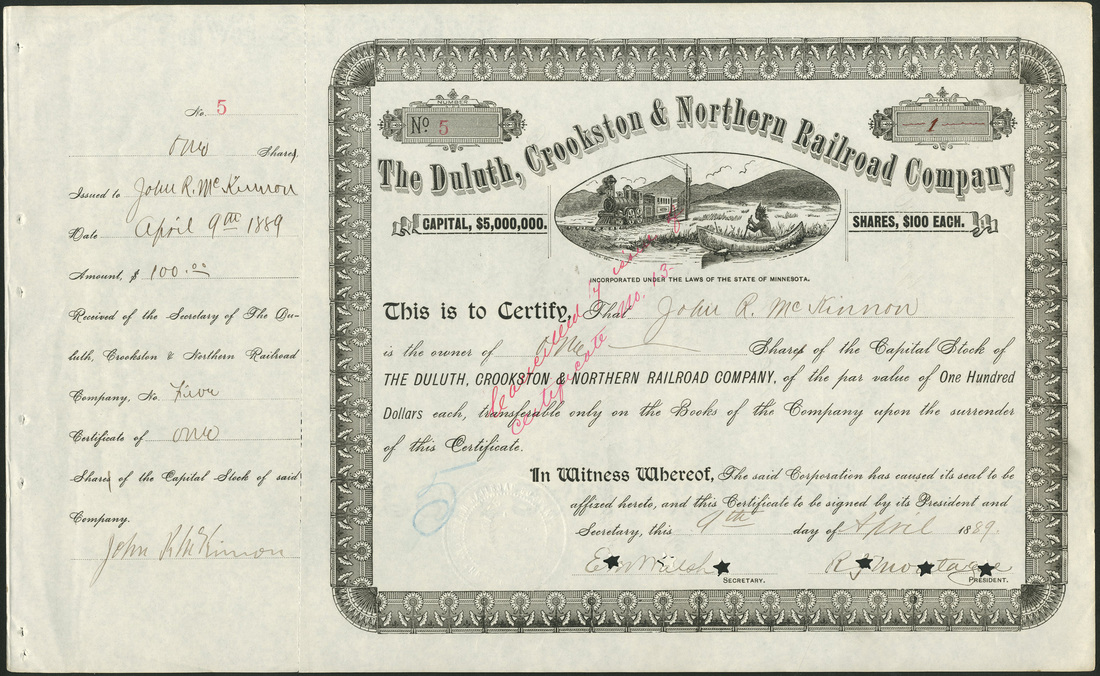 No. 5
one Shares,
Issued to John R. McKinnon
Date April 9th 1889
Amount, $ 100.00
Received of the Secretary of The Du-
luth, Crookston & Northern Railroad
Company, No. Five
Certificate of one
Shares of the Capital Stock of said
Company.
John R McKinnon
NUMBER
No 5
SHARES
1
The Duluth, Crookston & Northern Railroad Company
CAPITAL, $5,000,000.
SHARES, $100 EACH.
INCORPORATED UNDER THE LAWS OF THE STATE OF MINNESOTA.
This is to Certify, That John R. McKinnon
is the owner of One Shares of the Capital Stock of
THE DULUTH, CROOKSTON & NORTHERN RAILROAD COMPANY, of the par value of One Hundred
Dollars each, transferable only on the Books of the Company upon the surrender
of this Certificate.
Cancelled & issued
certificate No. 13
In Witness Whereof, The said Corporation has caused its seal to be
affixed hereto, and this Certificate to be signed by its President and
Secretary, this 9th day of April 1889.
5
E M Walsh
SECRETARY.
PRESIDENT.